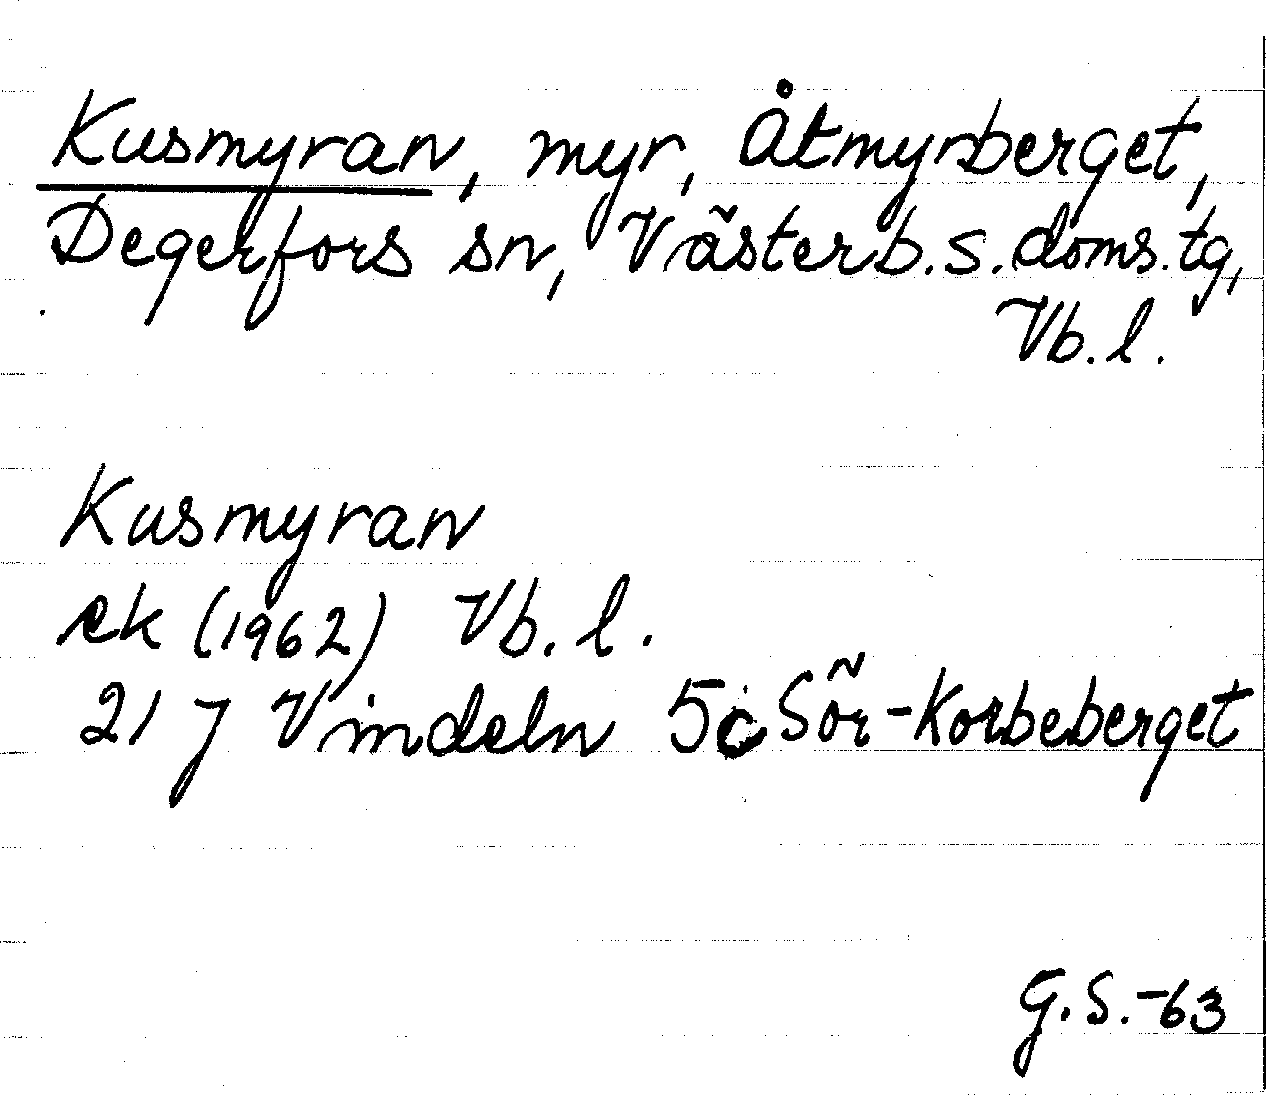 Kusmyran, myr, Åtmyrberget,
Degerfors sn, Västerb.s.doms.tg,
Vb.l.
Kusmyran
ek (1962) Vb.l.
21 J Vindeln 5c Sör-Korbeberget
G.S.-63